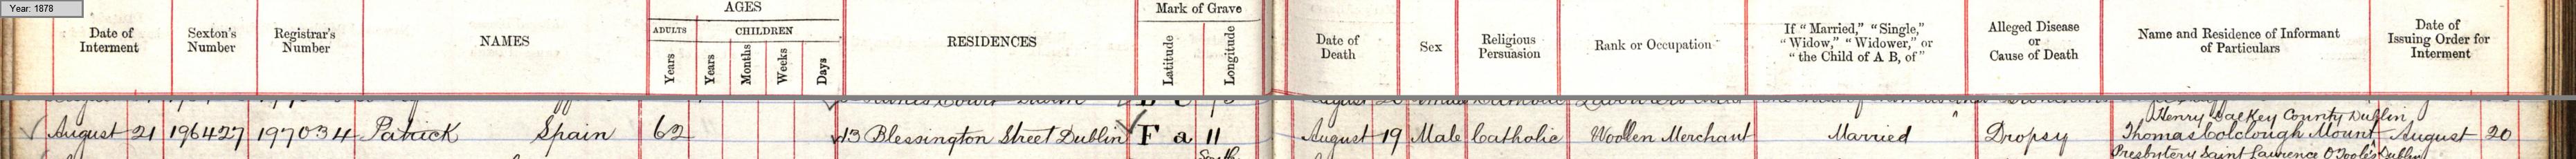 Year: 1878
AGES
Mark of Grave
Date of Interment
Sexton's Number
Registrar's Number
NAMES
ADULTS
CHILDREN
Years
Years
Months
Weeks
Days
RESIDENCES
Latitude
Longitude
Date of Death
Sex
Religious Persuasion
Rank or Occupation
If "Married," "Single," "Widow," "Widower," or "the Child of A B, of"
Alleged Disease or Cause of Death
Name and Residence of Informant of Particulars
Date of Issuing Order for Interment
Henry County Dublin
August 21 196427 197034 Patrick Spain 62 13 Blessington Street Dublin F a 11 August 19 Male Catholic Woollen Merchant Married Dropsy Thomas Colclough Mount August 20
South
Presbytery Saint Laurence O'Toole's Dublin